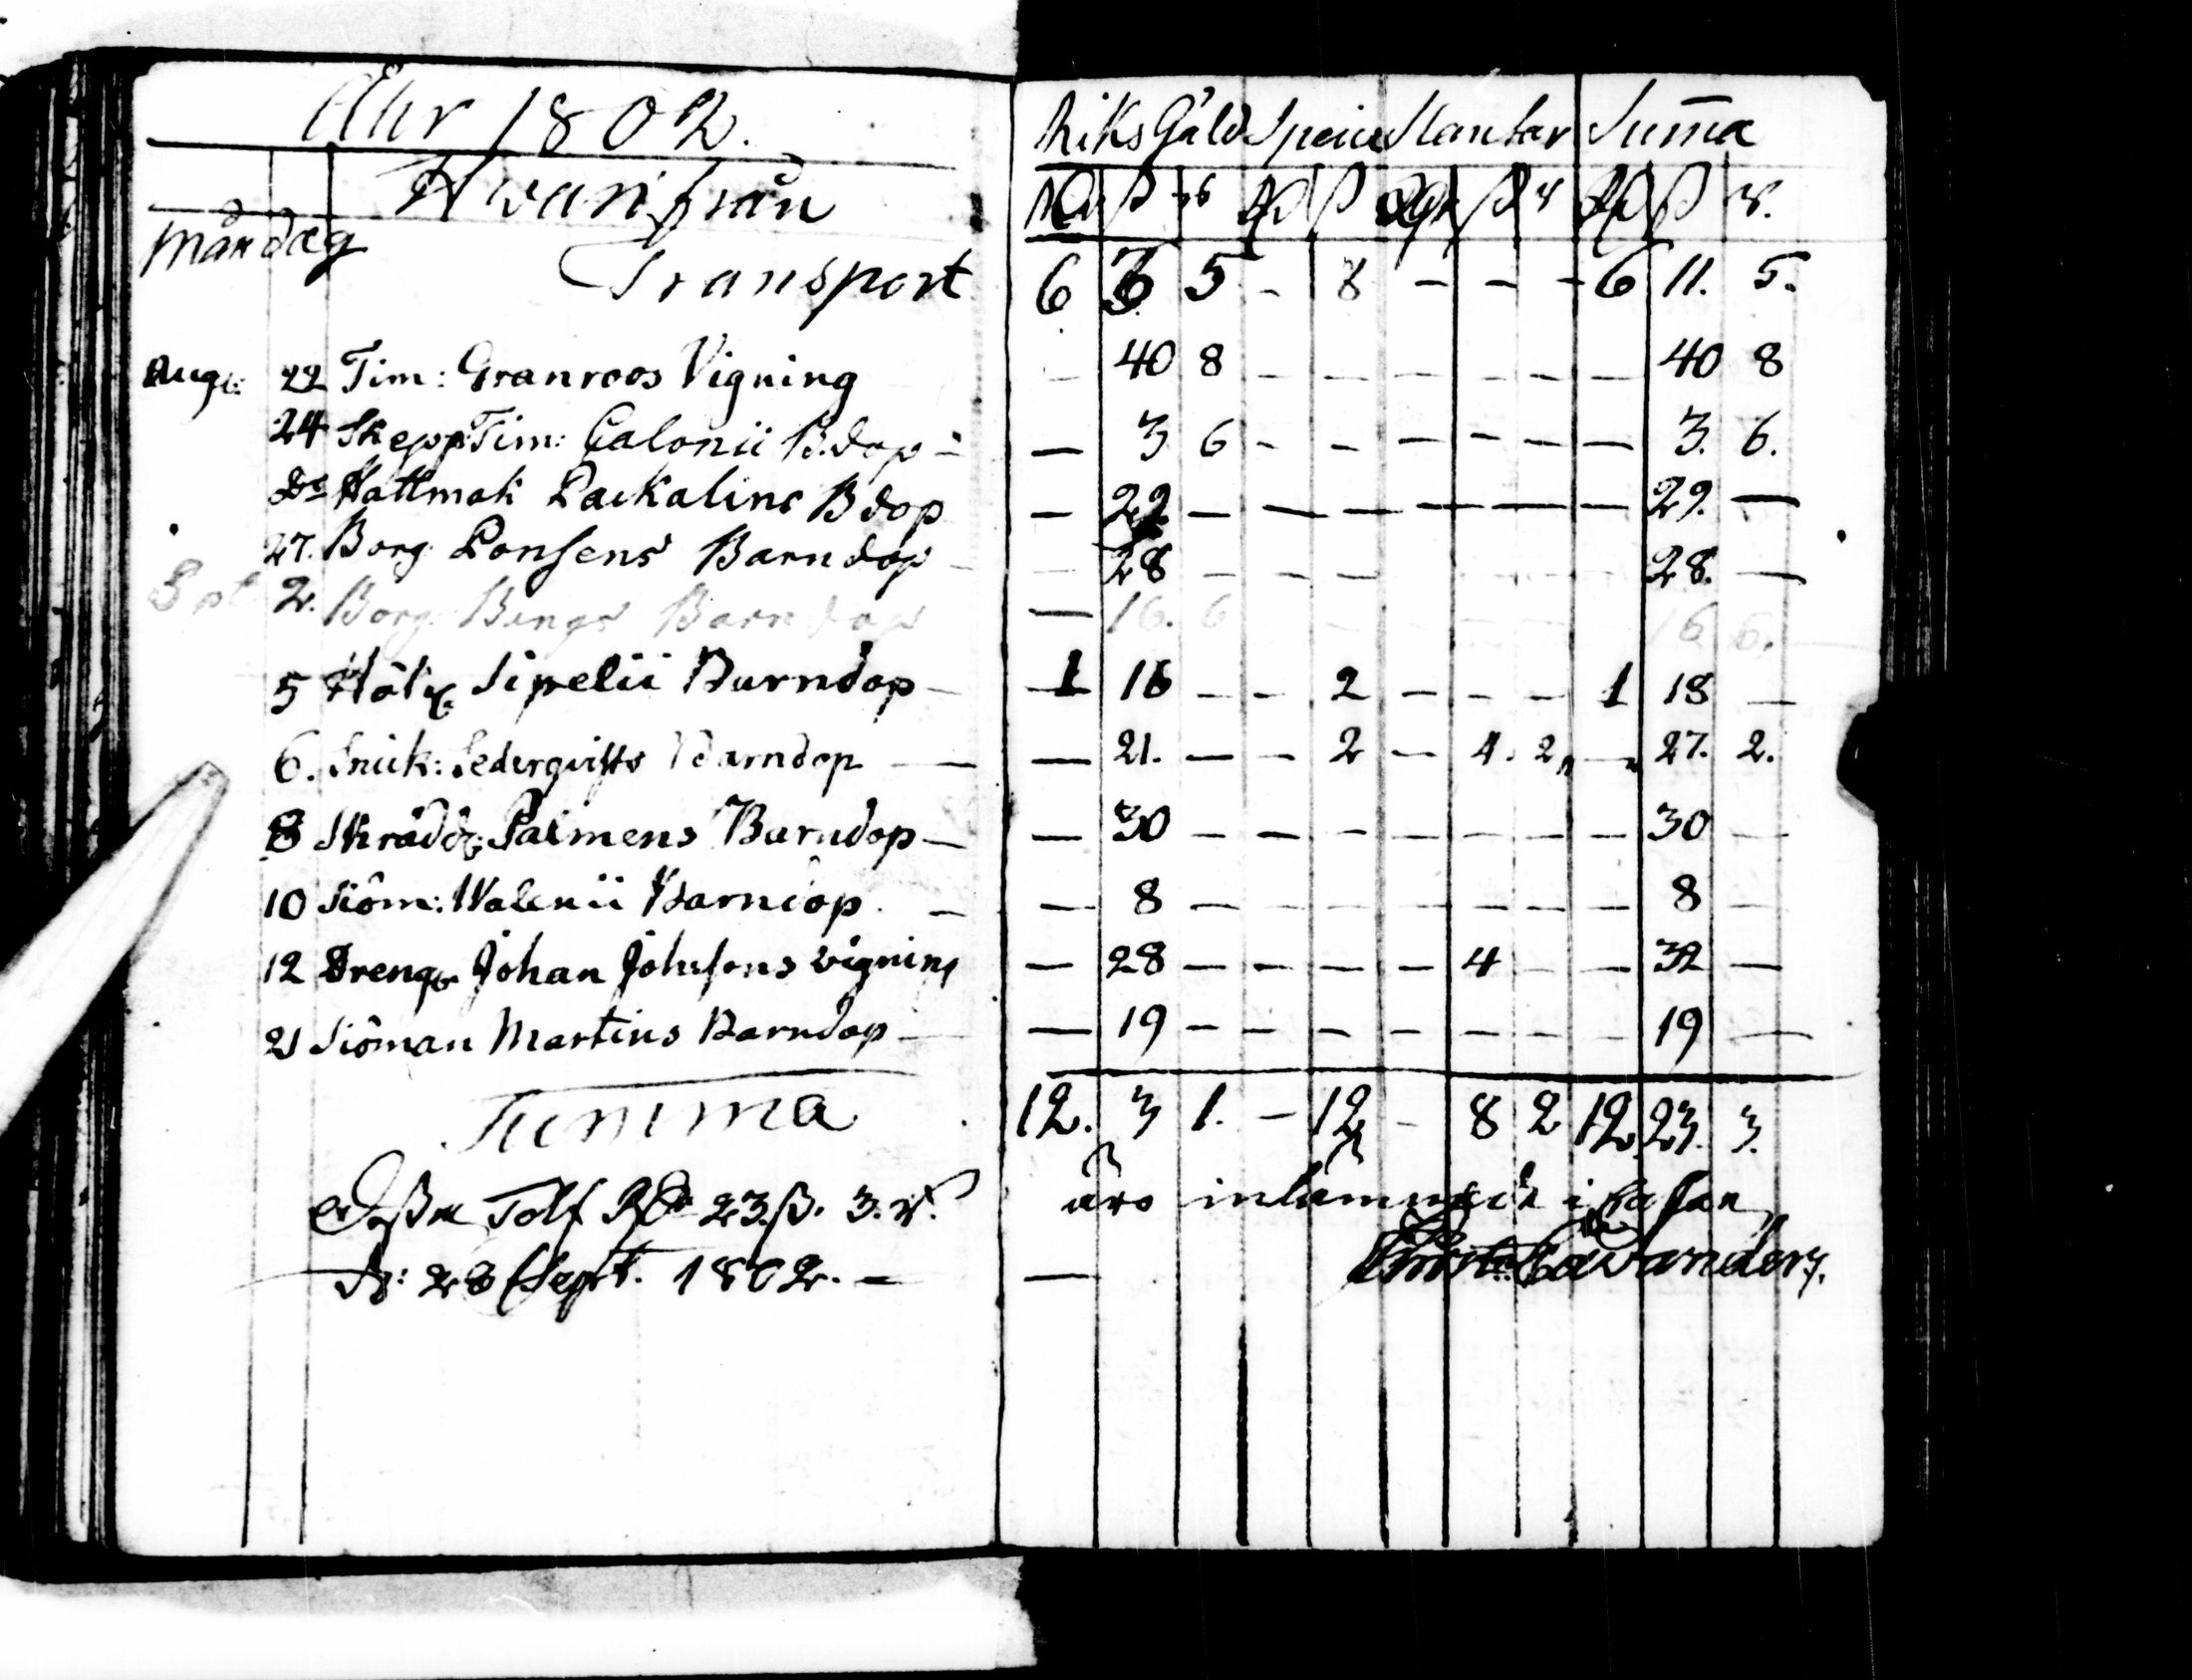 Åhr 1802.
RiksGäld Specie Slantar Summa
Hvarifrån
Rd ß rs Rd ß Rd ß rs Rd ß rs.
Mån dag
Transport 6 3 5 - 8 - - - 6 11. 5.
Aug: 22 Tim: Granroos Vigning - 40 8 - - - - - - 40 8
24 SkeppTim: Calonii B.dop - - 3 6 - - - - - - 3. 6.
Do Hattmak Packalins Bdop - 29 - - - - - - - 29. -
27. Borg Ponsens Barndop - - 28 - - - - - - 28. -
Sept 2. Borg: Bings Barndop - 16. 6 - - - - - 16 6.
5 Håll Sipelii Barndop - 1 16 - - 2 - - - 1 18 -
6. Snick: Sederqvists Barndop - - 21. - - 2 - 4. 2 - 27. 2.
8 Skrädd Palmens Barndop - - 30 - - - - - - - 30 -
10 Siöm: Walenii Barndop. - - 8 - - - - - - - 8 -
12 Dreng Johan Johnsons vigning - 28 - - - - 4 - - 32 -
21 Siöman Martins Barndop - - 19 - - - - - - - 19 -
Summa 12. 3 1. - 12 - 8 2 12 23. 3.
Desse Tolf Rd 23.ß. 3.rs. äro inlämnade i Cassan
d: 28 Sept. 1802. - - Christ: Cavander